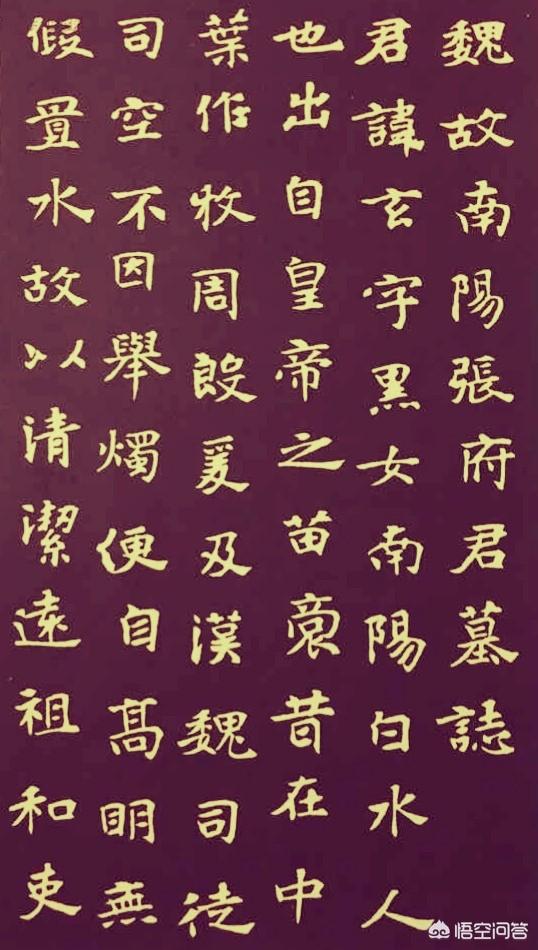 魏故南陽張府君墓誌
君諱玄字黑女南陽白水人
也出自皇帝之苗裔昔在中
葉作牧周殷爰及漢魏司徒
司空不因舉燭便自高明無
假置水故以清潔遠祖和吏
悟空问答